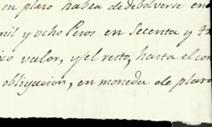 en plazo habia de debolverse en
mil y ocho Pesos en Secenta y tr
ico valor, y el resto, hasta el con
obligacion, en moneda de plata